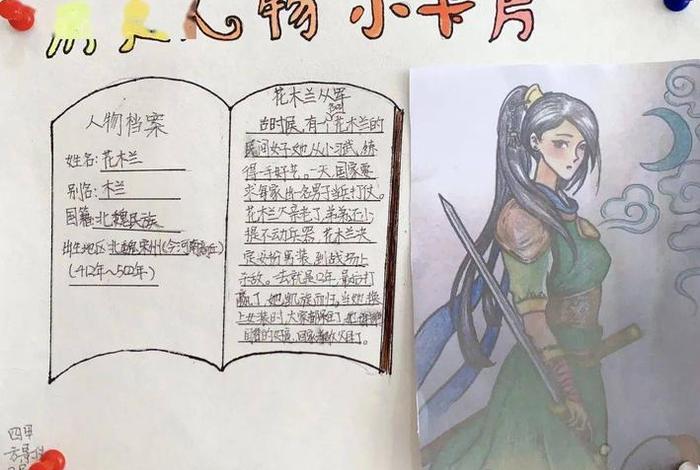 人物小卡片
人物档案
姓名：花木兰
别名：木兰
国籍：北魏民族
出生地区：北魏宋州（今河南商丘）
（412年～502年）
花木兰从军
古时候，有个花木兰的
民间女子，她从小习武，练
得一手好。一天，国家要
求每家出一名男子当兵打仗。
花木兰父亲老了，弟弟还小
提不动兵器，花木兰决
定女扮男装，到战场上
杀敌。一去就是12年，最后打
赢了，她凯旋而归。当她换
上女装时，大家都
四甲